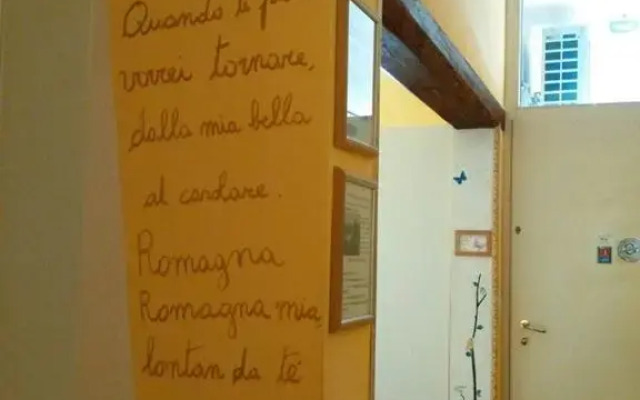 Quando ti p
vorrei tornare,
dalla mia bella
al casolare.
Romagna
Romagna mia,
lontan da te